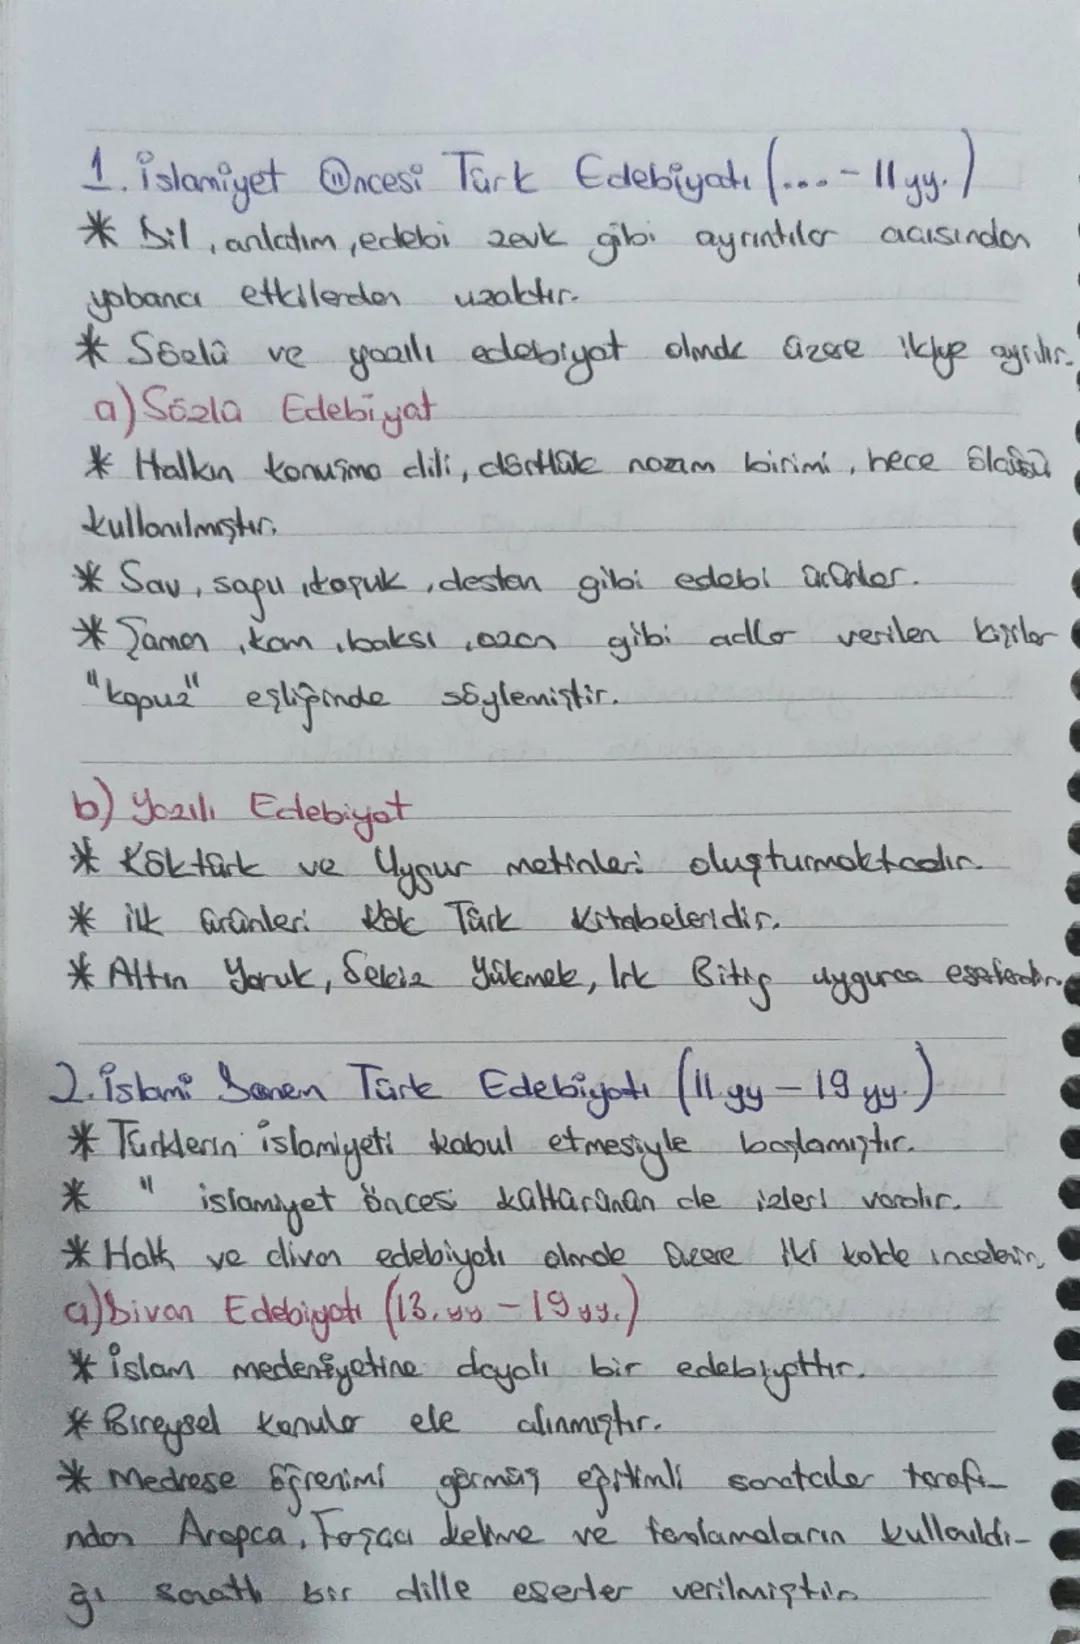 1. İslamiyet Öncesi Türk Edebiyatı (...-11 yy.)
* Dil, anlatım, edebi zevk gibi ayrıntılar acısından
yabancı etkilerden uzaktır.
* Sözlü ve yazılı edebiyat olmak üzere ikiye ayrılır.
a) Sözlü Edebiyat
* Halkın konuşma dili, dörtlük nazım birimi, hece ölçüsü
kullanılmıştır.
* Sav, sagu, koşuk, destan gibi edebi ürünler.
* Şaman, kam, baksı, ozan gibi adlar verilen kişiler
"kopuz" eşliğinde söylemiştir.
b) Yazılı Edebiyat
* Köktürk ve Uygur metinleri oluşturmaktadır.
* ilk ürünleri Kök Türk Kitabeleridir.
* Altın Yaruk, Sekiz Yükmek, Irk Bitig uygurca eserlerdir.
2. İslami Dönem Türk Edebiyatı (11.yy - 19 yy.)
* Türklerin islamiyeti kabul etmesiyle başlamıştır.
* " islamiyet öncesi kültürünün de izleri vardır.
* Halk ve divan edebiyatı olmak üzere iki kolda incelenir.
a) Divan Edebiyatı (13. yy - 19 yy.)
* İslam medeniyetine dayalı bir edebiyattır.
* Bireysel konular ele alınmıştır.
* Medrese öğrenimi görmüş eğitimli sanatcılar tarafı-
ndan Arapça, Farsça kelime ve tamlamaların kullanıldı-
ğı sanatlı bir dille eserler verilmiştir.